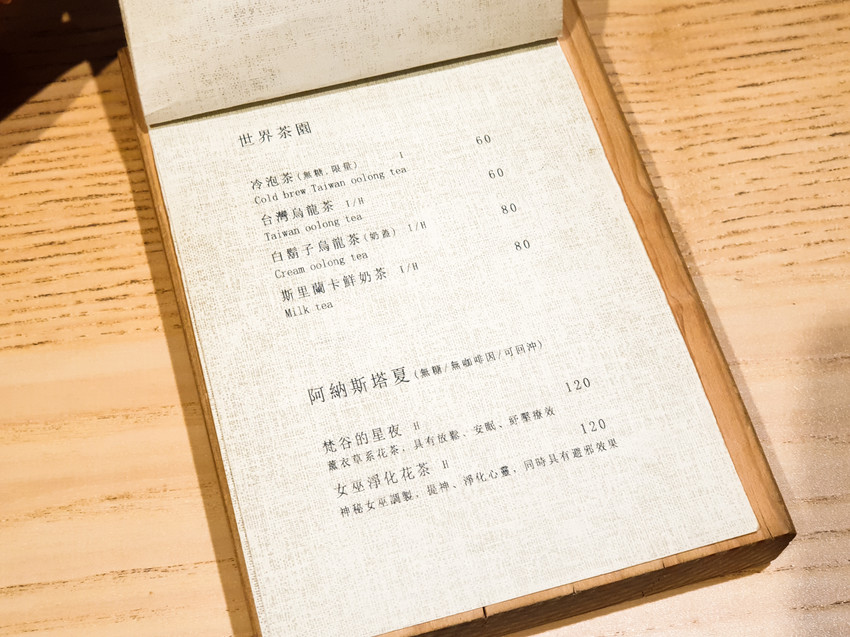 世界茶園
冷泡茶(無糖.限量) I 60
Cold brew Taiwan oolong tea
台灣烏龍茶 I/H 60
Taiwan oolong tea
白鬍子烏龍茶(奶蓋) I/H 80
Cream oolong tea
斯里蘭卡鮮奶茶 I/H 80
Milk tea
阿納斯塔夏(無糖/無咖啡因/可回沖)
梵谷的星夜 H 120
薰衣草系花茶，具有放鬆、安眠、紓壓療效
女巫淨化花茶 H 120
神秘女巫調製，提神、淨化心靈，同時具有避邪效果